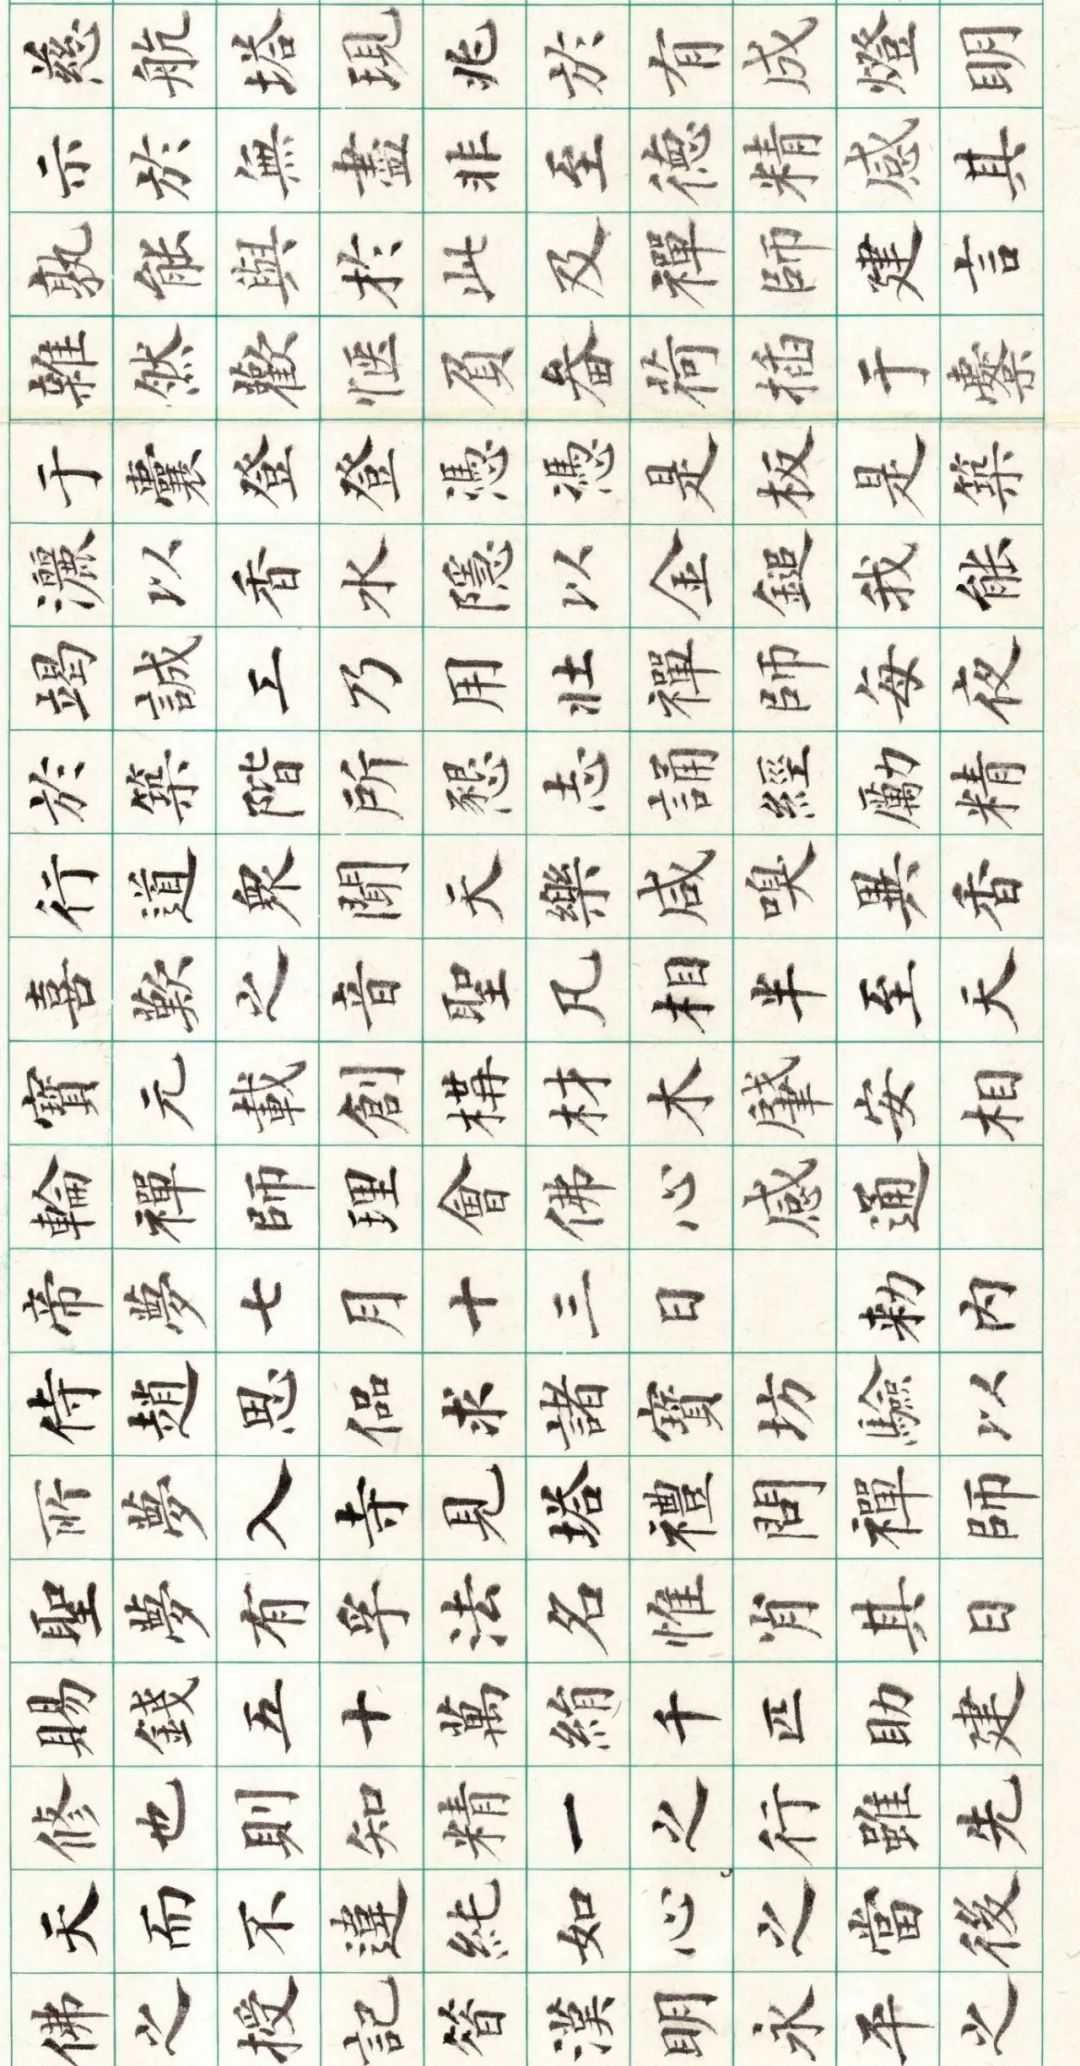 慈航塔現兆於有成燈明
示於無盡非至德精感其
孰能與於此及禪師建言
雜然歡愜負畚荷插于橐
于囊登登憑憑是板是築
灑以香水隱以金鎚我能
竭誠工乃用壯禪師每夜
於築階所懇志誦經勵精
行道衆聞天樂咸嗅異香
喜歎之音聖凡相半至天
寶元載創構材木肇安相
輪禪師理會佛心感通
帝夢七月十三日 勑內
侍趙思偘求諸寶坊驗以
所夢入寺見塔禮問禪師
聖夢有孚法名惟肖其日
賜錢五十萬絹千匹助建
修也則知精一之行雖先
天而不違純如之心當後
佛之授記昔漢明永平之